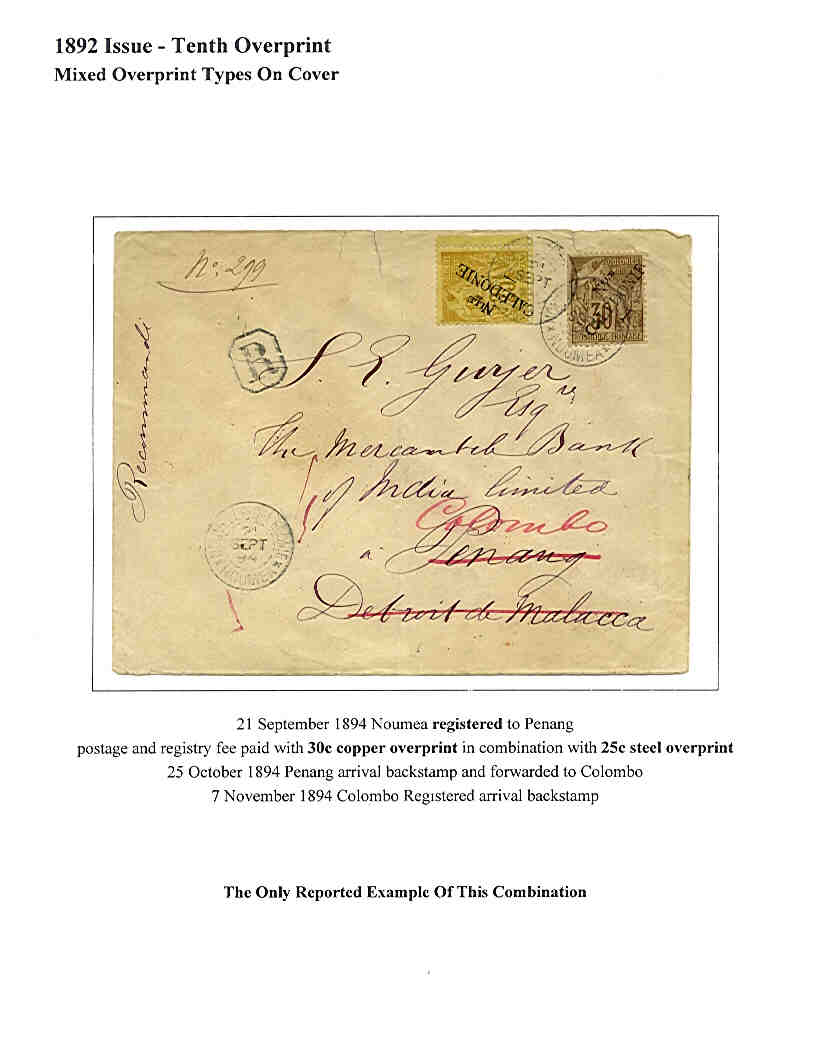 1892 Issue - Tenth Overprint
Mixed Overprint Types On Cover
No. 299
Nlle
CALEDONIE
21
SEPT
30
NOUMEA
R
Recommandé
S. E.
Esqre
The Mercantile Bank
of India limited
Colombo
à Penang
Detroit de Malacca
21
SEPT
94
NOUMEA
21 September 1894 Noumea registered to Penang
postage and registry fee paid with 30c copper overprint in combination with 25c steel overprint
25 October 1894 Penang arrival backstamp and forwarded to Colombo
7 November 1894 Colombo Registered arrival backstamp
The Only Reported Example Of This Combination